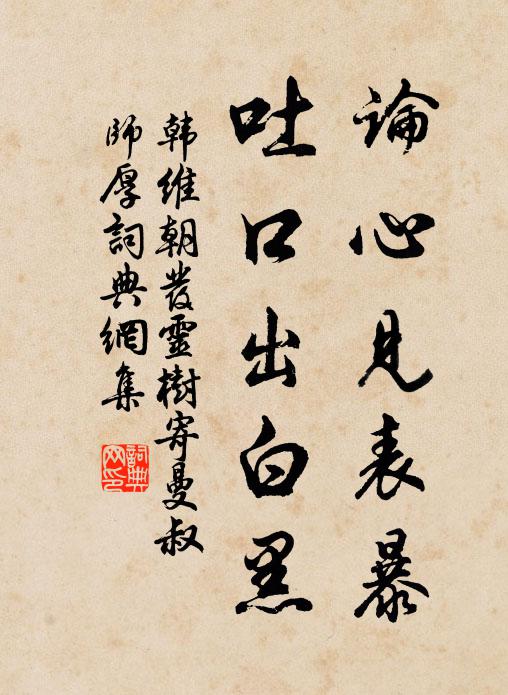 論心見表暴
吐口出白黑
韓維朝發靈樹寄曼叔
師厚詞典網集
詞典网印